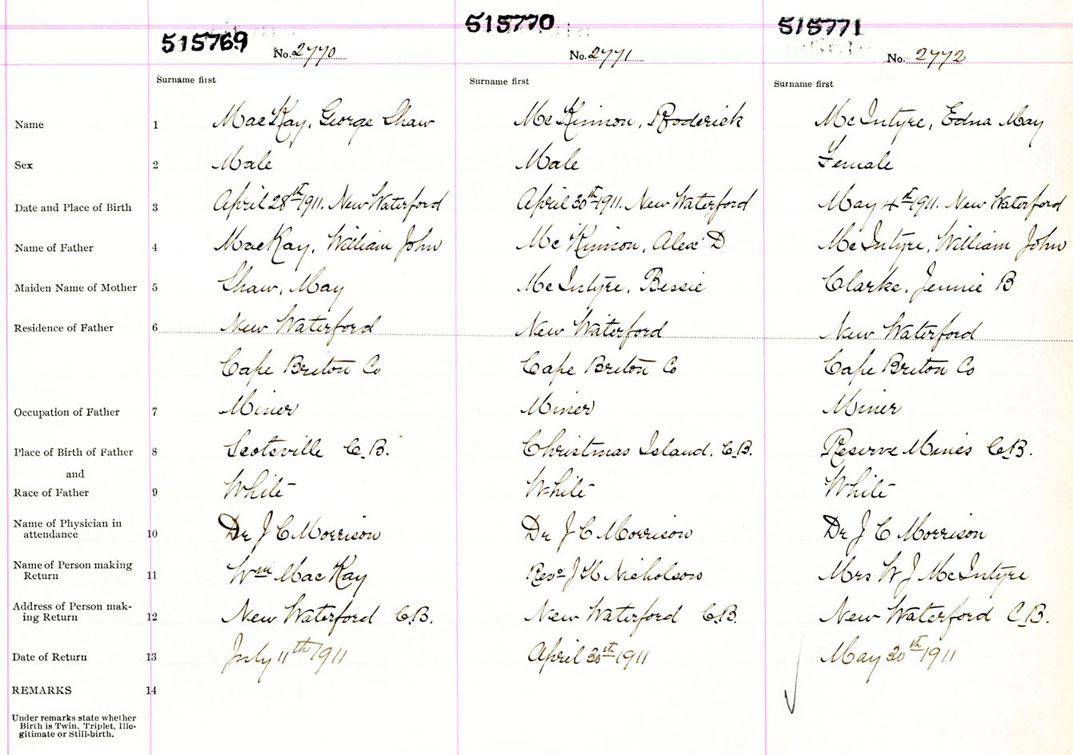 515769 515770 515771
No. 2770 No. 2771 No. 2772
Surname first Surname first Surname first
Name 1 MacKay, George Shaw McKinnon, Roderick McIntyre, Edna May
Sex 2 Male Male Female
Date and Place of Birth 3 April 28th 1911. New Waterford April 30th 1911. New Waterford May 4th 1911. New Waterford
Name of Father 4 MacKay, William John McKinnon, Alex D McIntyre, William John
Maiden Name of Mother 5 Shaw, May McIntyre, Bessie Clarke, Jennie B
Residence of Father 6 New Waterford New Waterford New Waterford
Cape Briton Co Cape Briton Co Cape Briton Co
Occupation of Father 7 Miner Miner Miner
Place of Birth of Father 8 Scotsville C.B. Christmas Island. C.B. Reserve Mines C.B.
and
Race of Father 9 White White White
Name of Physician in
attendance 10 Dr J C Morrison Dr J C Morrison Dr J C Morrison
Name of Person making
Return 11 Wm MacKay Revd J H Nicholson Mrs W J McIntyre
Address of Person mak-
ing Return 12 New Waterford C.B. New Waterford C.B. New Waterford C.B.
Date of Return 13 July 11th 1911 April 30th 1911 May 30th 1911
REMARKS 14
Under remarks state whether
Birth is Twin, Triplet, Ille-
gitimate or Still-birth.